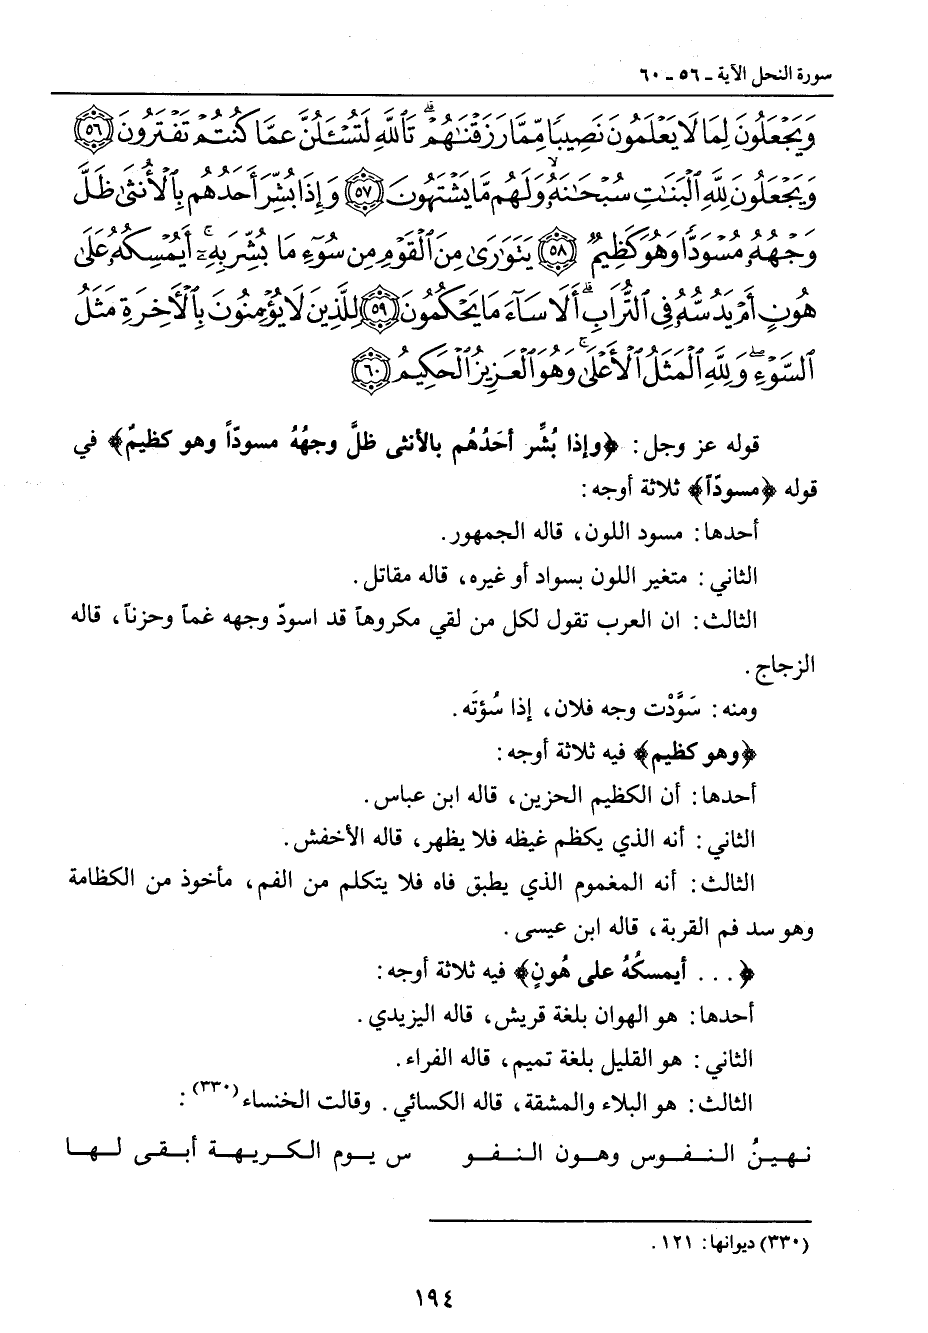 سورة النحل الآية ـ ٥٦ ـ ٦٠
وَيَجْعَلُونَ لِمَا لَا يَعْلَمُونَ نَصِيبًا مِّمَّا رَزَقْنَاهُمْ ۗ تَاللَّهِ لَتُسْـَٔلُنَّ عَمَّا كُنتُمْ تَفْتَرُونَ ٥٦
وَيَجْعَلُونَ لِلَّهِ الْبَنَاتِ سُبْحَانَهُ ۙ وَلَهُم مَّا يَشْتَهُونَ ٥٧ وَإِذَا بُشِّرَ أَحَدُهُم بِالْأُنثَىٰ ظَلَّ
وَجْهُهُ مُسْوَدًّا وَهُوَ كَظِيمٌ ٥٨ يَتَوَارَىٰ مِنَ الْقَوْمِ مِن سُوٓءِ مَا بُشِّرَ بِهِ ۚ أَيُمْسِكُهُ عَلَىٰ
هُونٍ أَمْ يَدُسُّهُ فِي التُّرَابِ ۗ أَلَا سَآءَ مَا يَحْكُمُونَ ٥٩ لِلَّذِينَ لَا يُؤْمِنُونَ بِالْآخِرَةِ مَثَلُ
السَّوْءِ ۖ وَلِلَّهِ الْمَثَلُ الْأَعْلَىٰ ۚ وَهُوَ الْعَزِيزُ الْحَكِيمُ ٦٠
قوله عز وجل: ﴿وإذا بُشِّر أحَدُهُم بالأنثى ظلَّ وجهُهُ مسودّاً وهو كظيمٌ﴾ في
قوله ﴿مسودّاً﴾ ثلاثة أوجه:
أحدها: مسود اللون، قاله الجمهور.
الثاني: متغير اللون بسواد أو غيره، قاله مقاتل.
الثالث: ان العرب تقول لكل من لقي مكروهاً قد اسودّ وجهه غماً وحزناً، قاله
الزجاج.
ومنه: سَوَّدْت وجه فلان، إذا سُؤتَه.
﴿وهو كظيم﴾ فيه ثلاثة أوجه:
أحدها: أن الكظيم الحزين، قاله ابن عباس.
الثاني: أنه الذي يكظم غيظه فلا يظهر، قاله الأخفش.
الثالث: أنه المغموم الذي يطبق فاه فلا يتكلم من الفم، مأخوذ من الكظامة
وهو سد فم القربة، قاله ابن عيسى.
﴿. . . أيمسكُهُ على هُونٍ﴾ فيه ثلاثة أوجه:
أحدها: هو الهوان بلغة قريش، قاله اليزيدي.
الثاني: هو القليل بلغة تميم، قاله الفراء.
الثالث: هو البلاء والمشقة، قاله الكسائي. وقالت الخنساء(٣٣٠):
نـهـيـنُ الـنـفـوس وهـون الـنـفـو س يـوم الـكـريـهـة أبـقـى لـهـا
(٣٣٠) ديوانها: ١٢١.
١٩٤